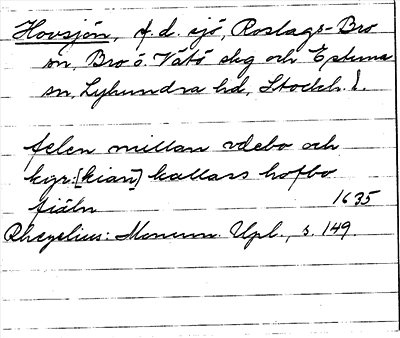 Hovsjön, f.d. sjö, Roslags-Bro
sn, Bro o. Vätö skg och Estuna
sn, Lyhundra hd, Stockh. l.
felen millan vdebo och
kyr:[kian] kallas hofbo
fiäln 1635
Rhezelius: Monum. Upl., s. 149.